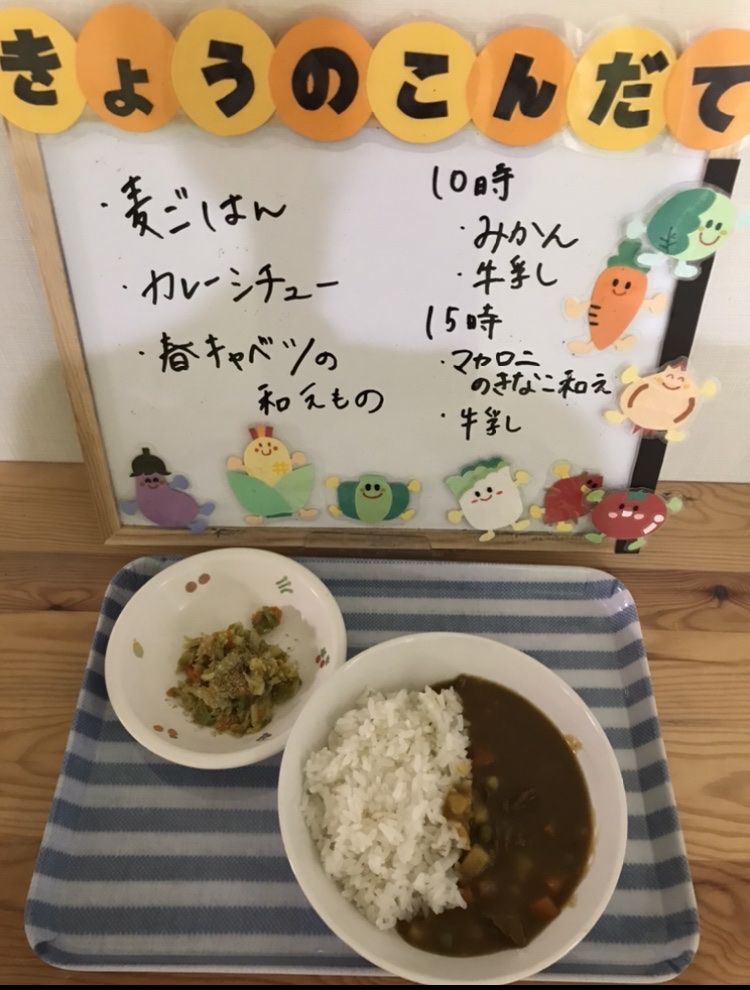 きょうのこんだて
・麦ごはん
・カレーシチュー
・春キャベツの
和えもの
10時
・みかん
・牛乳し
15時
・マカロニ
のきなこ和え
・牛乳し